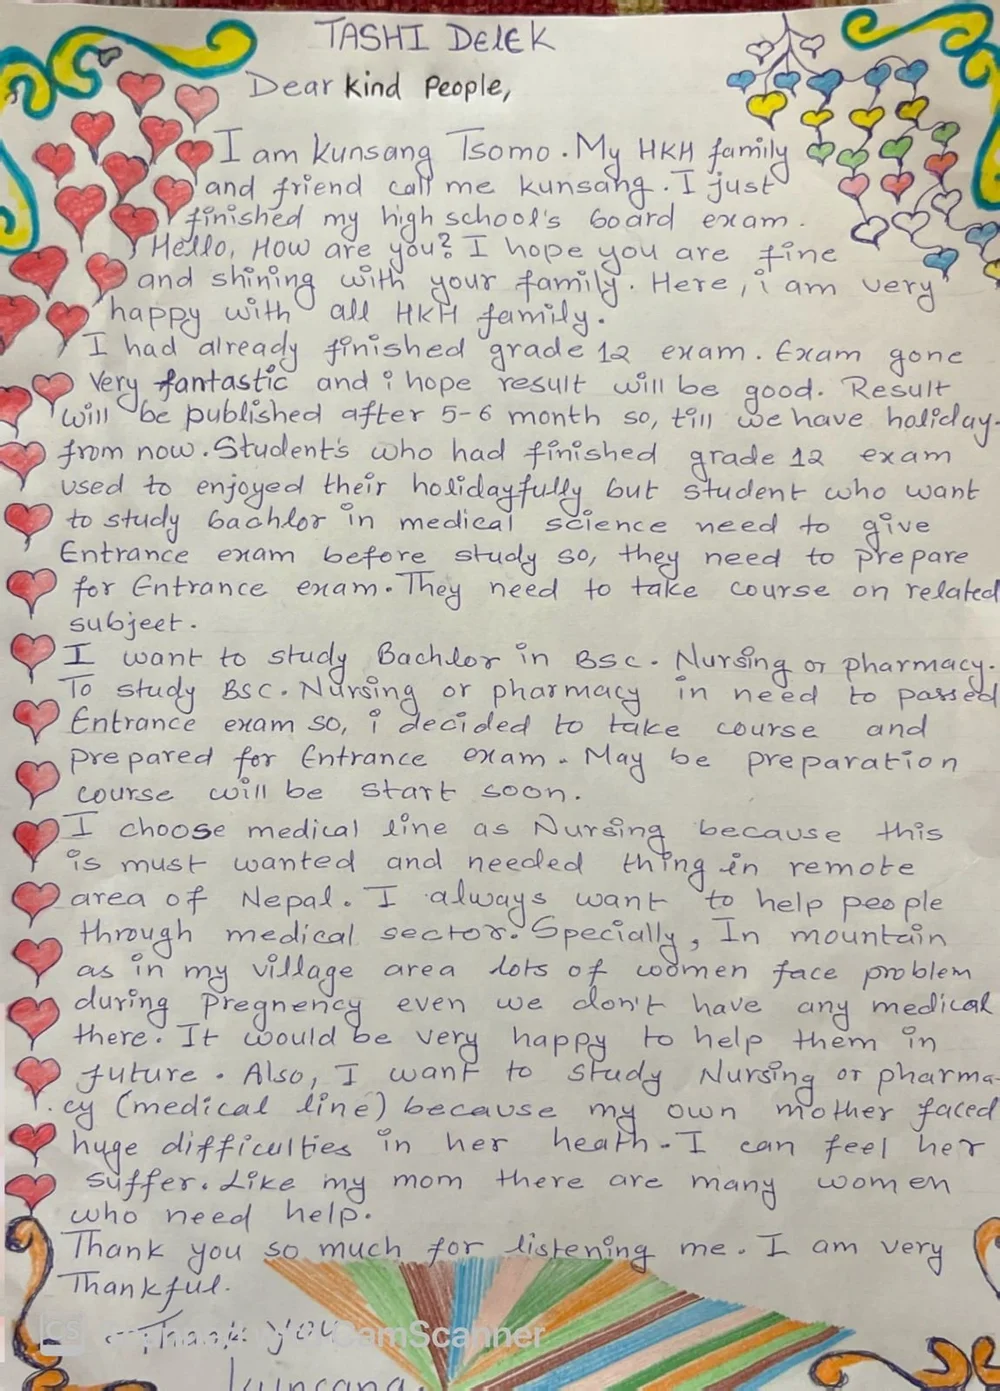 TASHI DELEK
Dear Kind People,
I am Kunsang Tsomo. My HKH family
and friend call me Kunsang. I just
finished my high school's board exam.
Hello, How are you? I hope you are fine
and shining with your family. Here, i am very
happy with all HKH family.
I had already finished grade 12 exam. Exam gone
Very fantastic and i hope result will be good. Result
will be published after 5-6 month so, till we have holiday.
from now. Student's who had finished grade 12 exam
used to enjoyed their holidayfully but student who want
to study bachlor in medical science need to give
Entrance exam before study so, they need to prepare
for Entrance exam. They need to take course on related
subject.
I want to study Bachlor in BSC. Nursing or pharmacy.
To study BSC. Nursing or pharmacy in need to passed
Entrance exam so, i decided to take course and
prepared for Entrance exam. May be preparation
course will be start soon.
I choose medical line as Nursing because this
is must wanted and needed thing in remote
area of Nepal. I always want to help people
through medical sector. Specially, In mountain
as in my village area lots of women face problem
during Pregnency even we don't have any medical
there. It would be very happy to help them in
future. Also, I want to study Nursing or pharma-
cy (medical line) because my own mother faced
huge difficulties in her heath. I can feel her
suffer. Like my mom there are many women
who need help.
Thank you so much for listening me. I am very
Thankful.
Thank you
CS CamScanner
Kunsang.